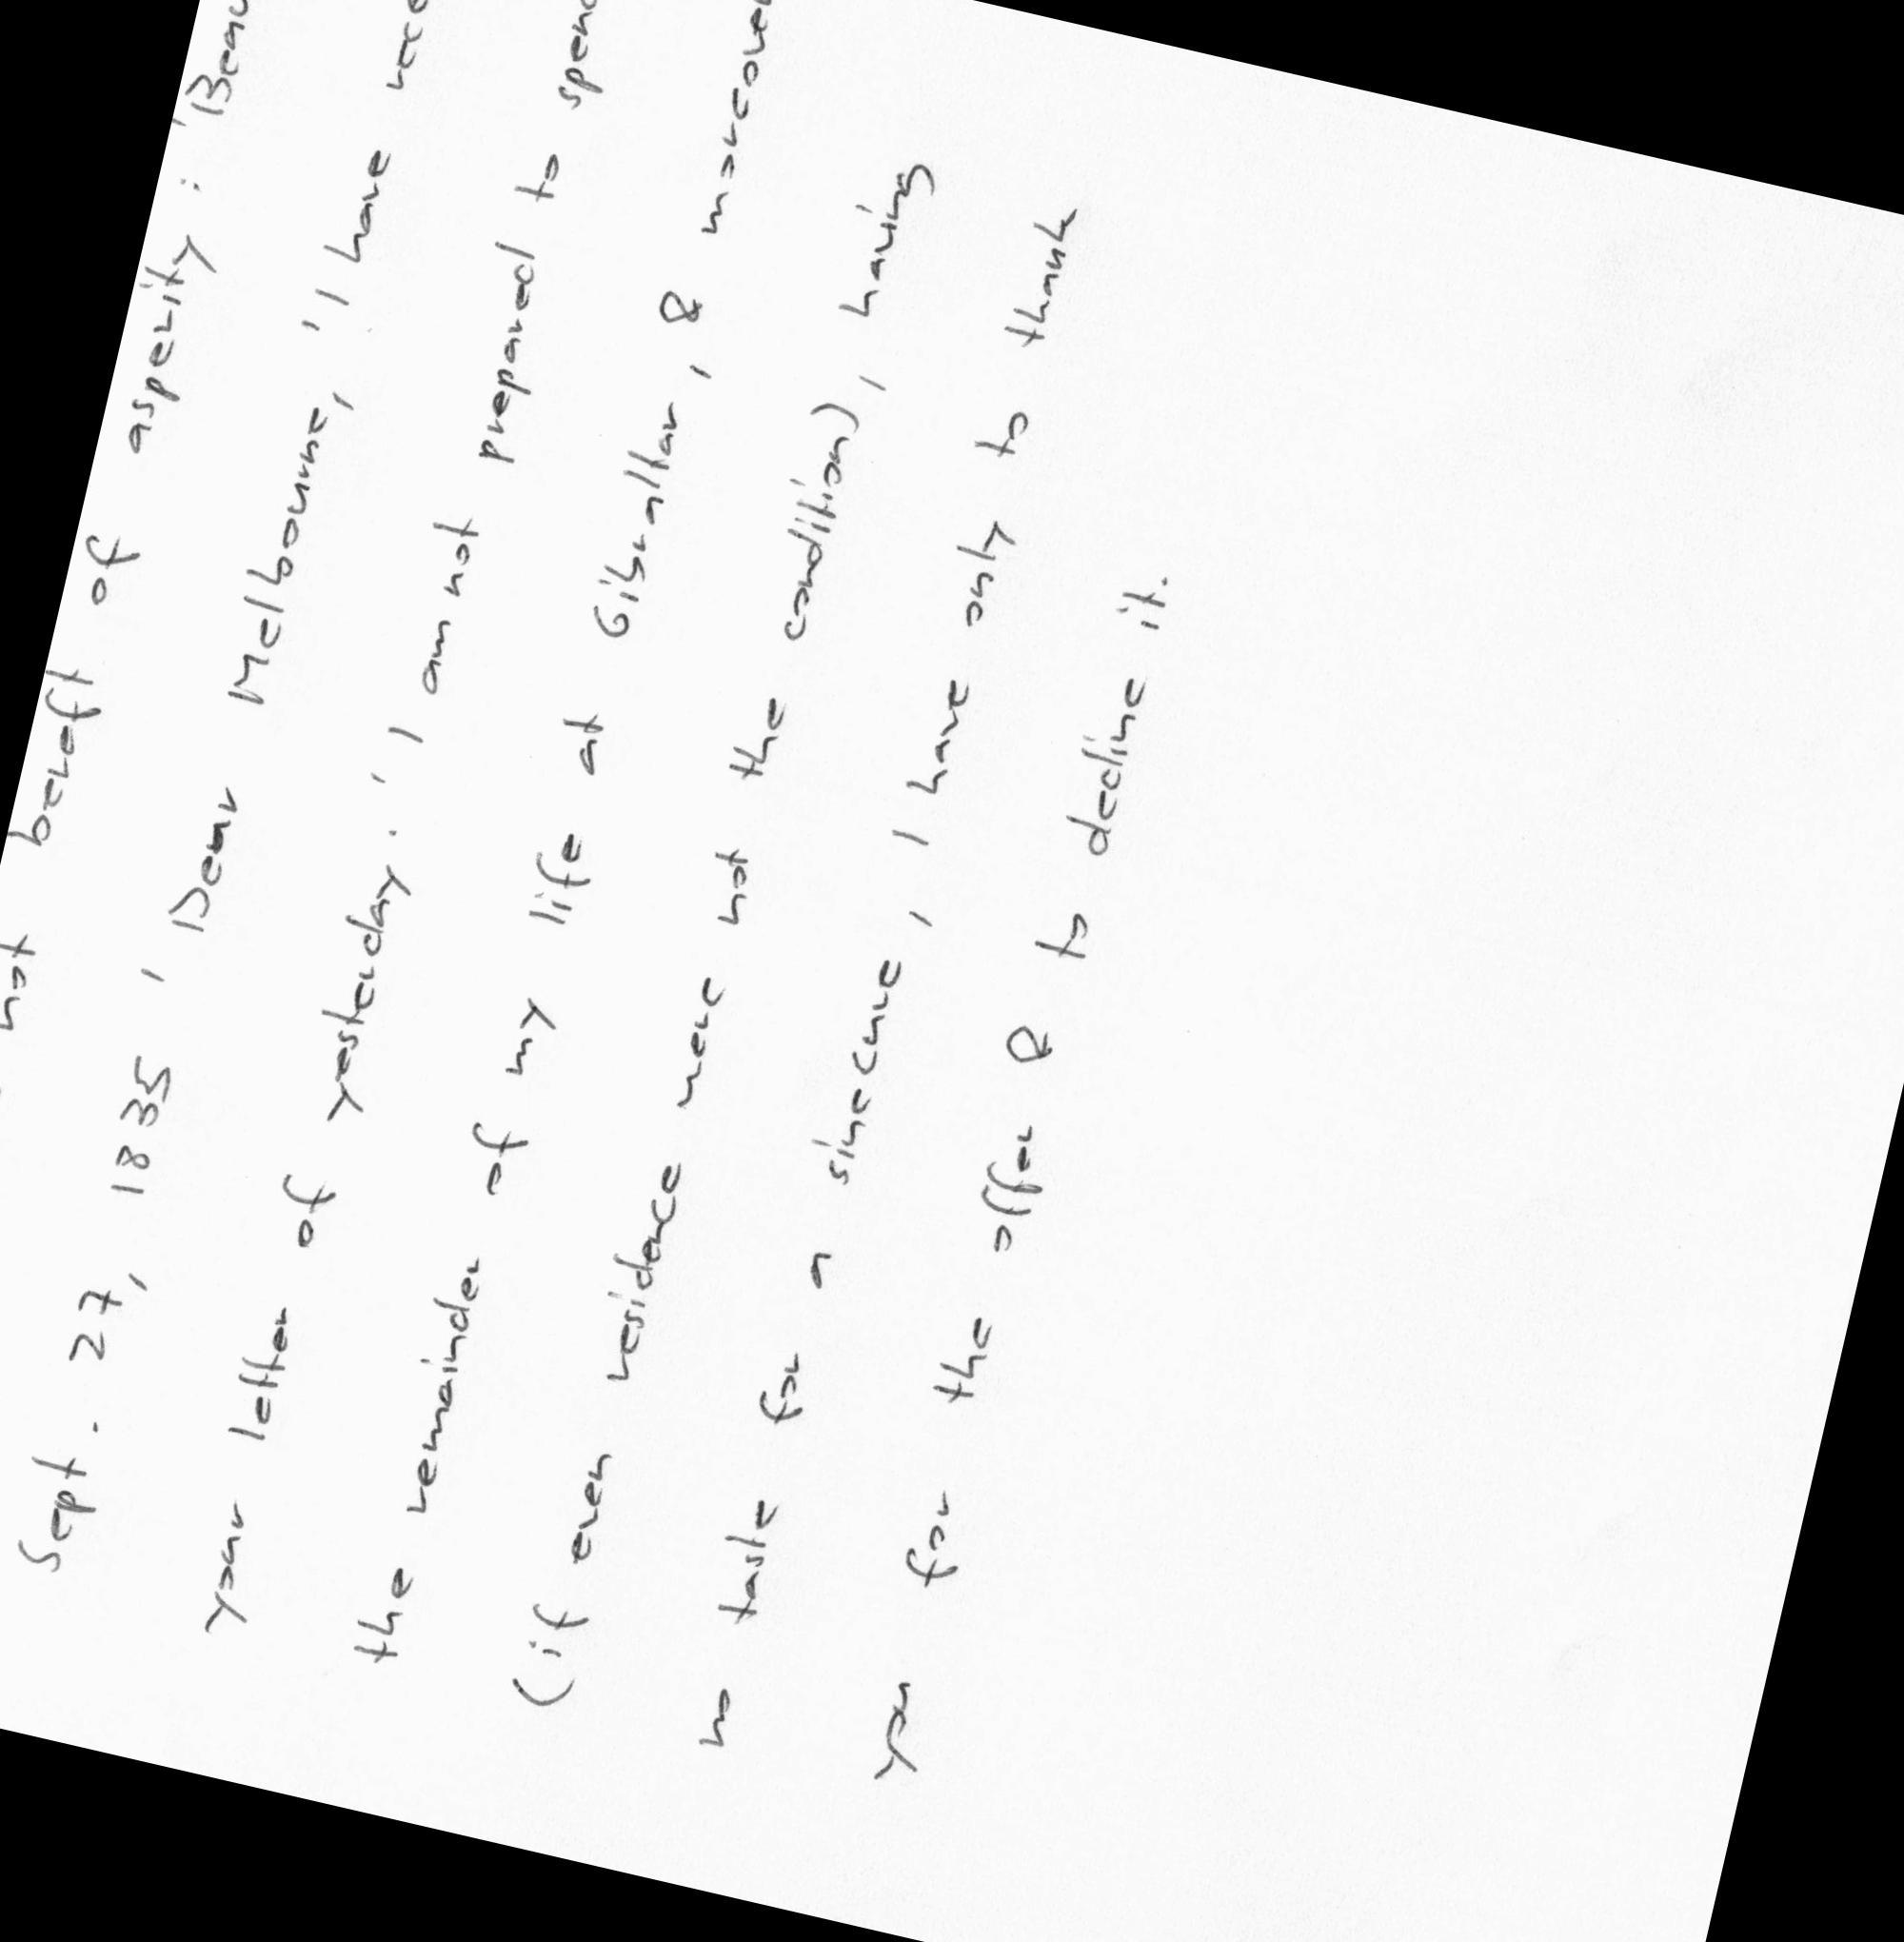 not bereft of asperity: 'Beau
Sept. 27, 1835, Dear Melbourne,' 'I have rece
your letter of yesterday.' 'I am not prepared to spend
the remainder of my life at Gibraltar, & moreover
(if even residence were not the condition), having
no taste for a sinecure, I have only to thank
you for the offer & to decline it.